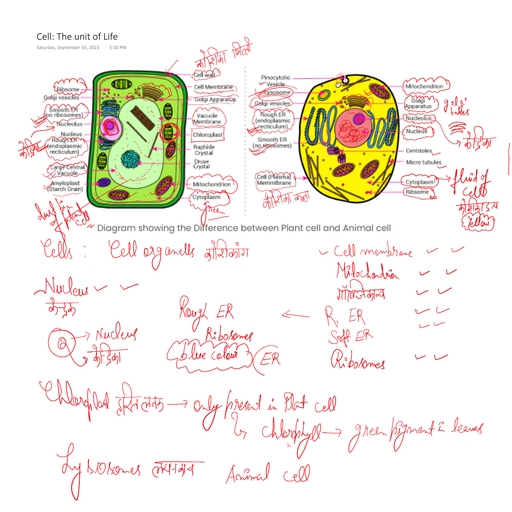 Cell: The unit of Life
Saturday, September 16, 2023 5:30 PM
Cell wall
Ribsome
Cell Membrane
Golgi vesicles
Golgi Apparatus
Smooth ER
(no ribosomes)
Vacuole
Membrane
Nucleolus
Nucleus
Chloroplast
Rough ER
(endoplasmic
recticulum)
Raphide
Crystal
Large Central
Vacuole
Druse
Crystal
Amyloplast
(Starch Grain)
Mitochondrion
Cytoplasm
Pinocytotic
Vesicle
Mitochondrion
Lysosome
Golgi vesicles
Golgi
Apparatus
Rough ER
(endoplasmic
recticulum)
Nucleolus
Nucleus
Smooth ER
(no ribosomes)
Centrioles
Micro tubules
Cell (Plasma)
Memmbrane
Cytoplasm
Ribsome
fluid of
cell
Diagram showing the Difference between Plant cell and Animal cell
Cells : Cell organells कोशिकांग
Cell membrane
Mitochondrion
Nucleus
केन्द्रक
Rough ER
R. ER
Nucleus
Ribosomes
blue colour ER
Ribosomes
Chloroplast → only present in Plant cell
Chlorophyll → green pigment in leaves
Lysosomes Animal cell